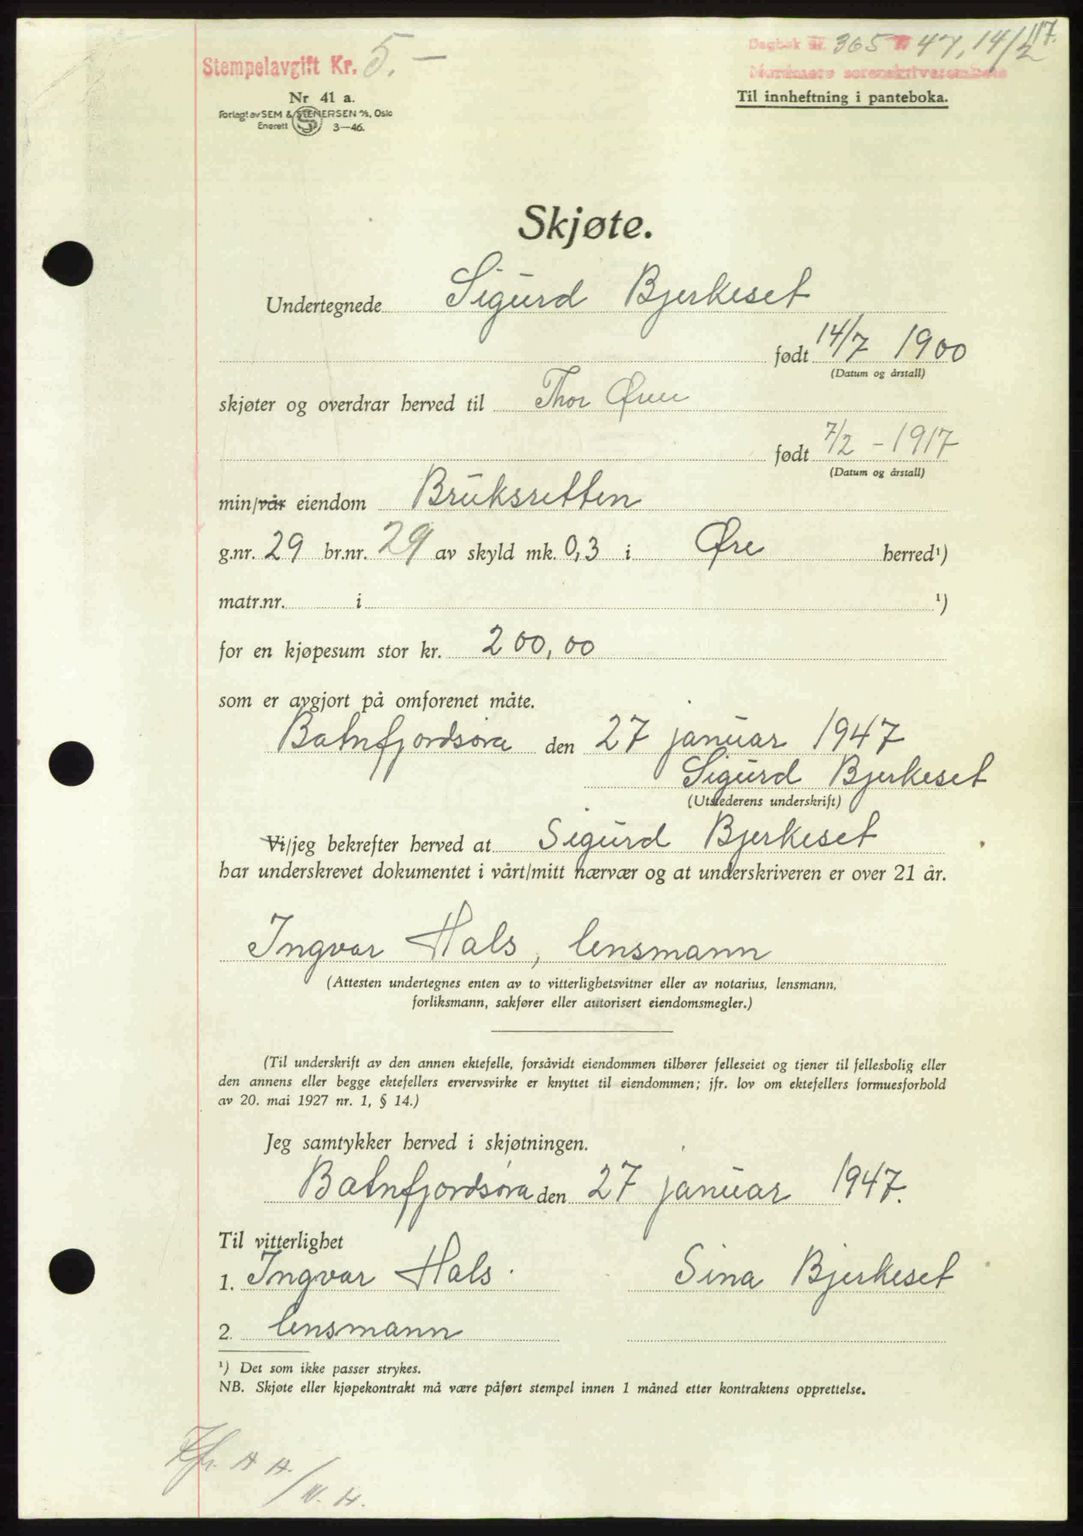 Dagbok nr. 365 47, 14/2 117.
Stempelavgift Kr. 5.-
Nordmøre sorenskriverembete
Nr 41 a.
Til innheftning i panteboka.
Forlagt av SEM & STENERSEN A/S, Oslo
Enerett S 3-46.
Skjøte.
Undertegnede Sigurd Bjerkeset
født 14/7 1900
(Datum og årstall)
skjøter og overdrar herved til Thor Øren
født 7/2 - 1917
(Datum og årstall)
min/vår eiendom Bruksretten
g.nr. 29 br.nr. 29 av skyld mk. 0,3 i Øre herred¹)
matr.nr. i ¹)
for en kjøpesum stor kr. 200,00
som er avgjort på omforenet måte.
Batnfjordsøra den 27 januar 1947
Sigurd Bjerkeset
(Utstederens underskrift)
Vi/jeg bekrefter herved at Sigurd Bjerkeset
har underskrevet dokumentet i vårt/mitt nærvær og at underskriveren er over 21 år.
Ingvar Hals, lensmann
(Attesten undertegnes enten av to vitterlighetsvitner eller av notarius, lensmann,
forliksmann, sakfører eller autorisert eiendomsmegler.)
(Til underskrift av den annen ektefelle, forsåvidt eiendommen tilhører felleseiet og tjener til fellesbolig eller
den annens eller begge ektefellers ervervsvirke er knyttet til eiendommen; jfr. lov om ektefellers formuesforhold
av 20. mai 1927 nr. 1, § 14.)
Jeg samtykker herved i skjøtningen.
Batnfjordsøra den 27 januar 1947.
Til vitterlighet
1. Ingvar Hals. Sina Bjerkeset
2. lensmann
¹) Det som ikke passer strykes.
NB. Skjøte eller kjøpekontrakt må være påført stempel innen 1 måned etter kontraktens opprettelse.